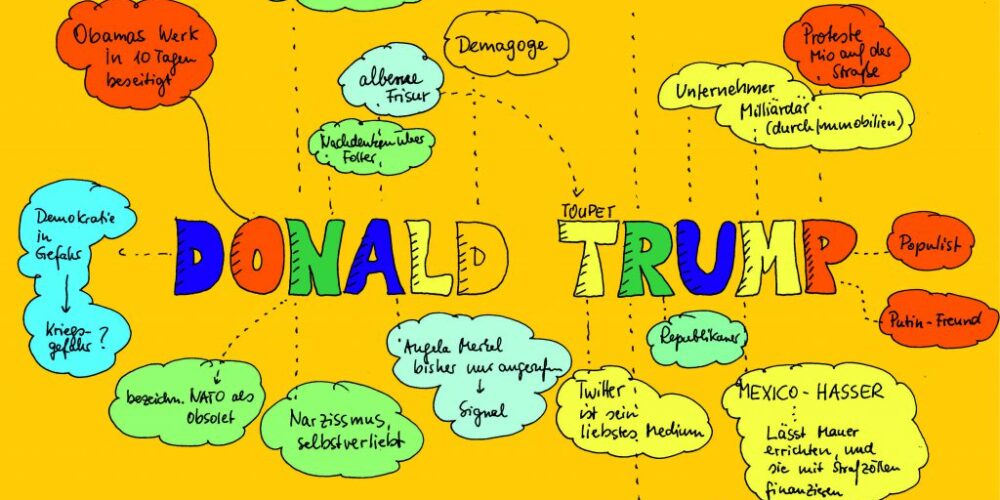 Obamas Werk
in 10 Tagen
beseitigt
alberne
Frisur
Demagoge
Proteste
Mio auf der
Straße
Unternehmer
Milliardär
(durch Immobilien)
Nachdenken über
Folter
Demokratie
in
Gefahr
Kriegs-
gefahr?
TOUPET
DONALD TRUMP
Populist
Putin-Freund
Republikaner
bezeichn. NATO als
Obsolet
Narzissmus,
selbstverliebt
Angela Merkel
bisher nur angerufen
Signal
Twitter
ist sein
liebstes Medium
MEXICO-HASSER
Lässt Mauer
errichten, und
sie mit Strafzöllen
finanzieren